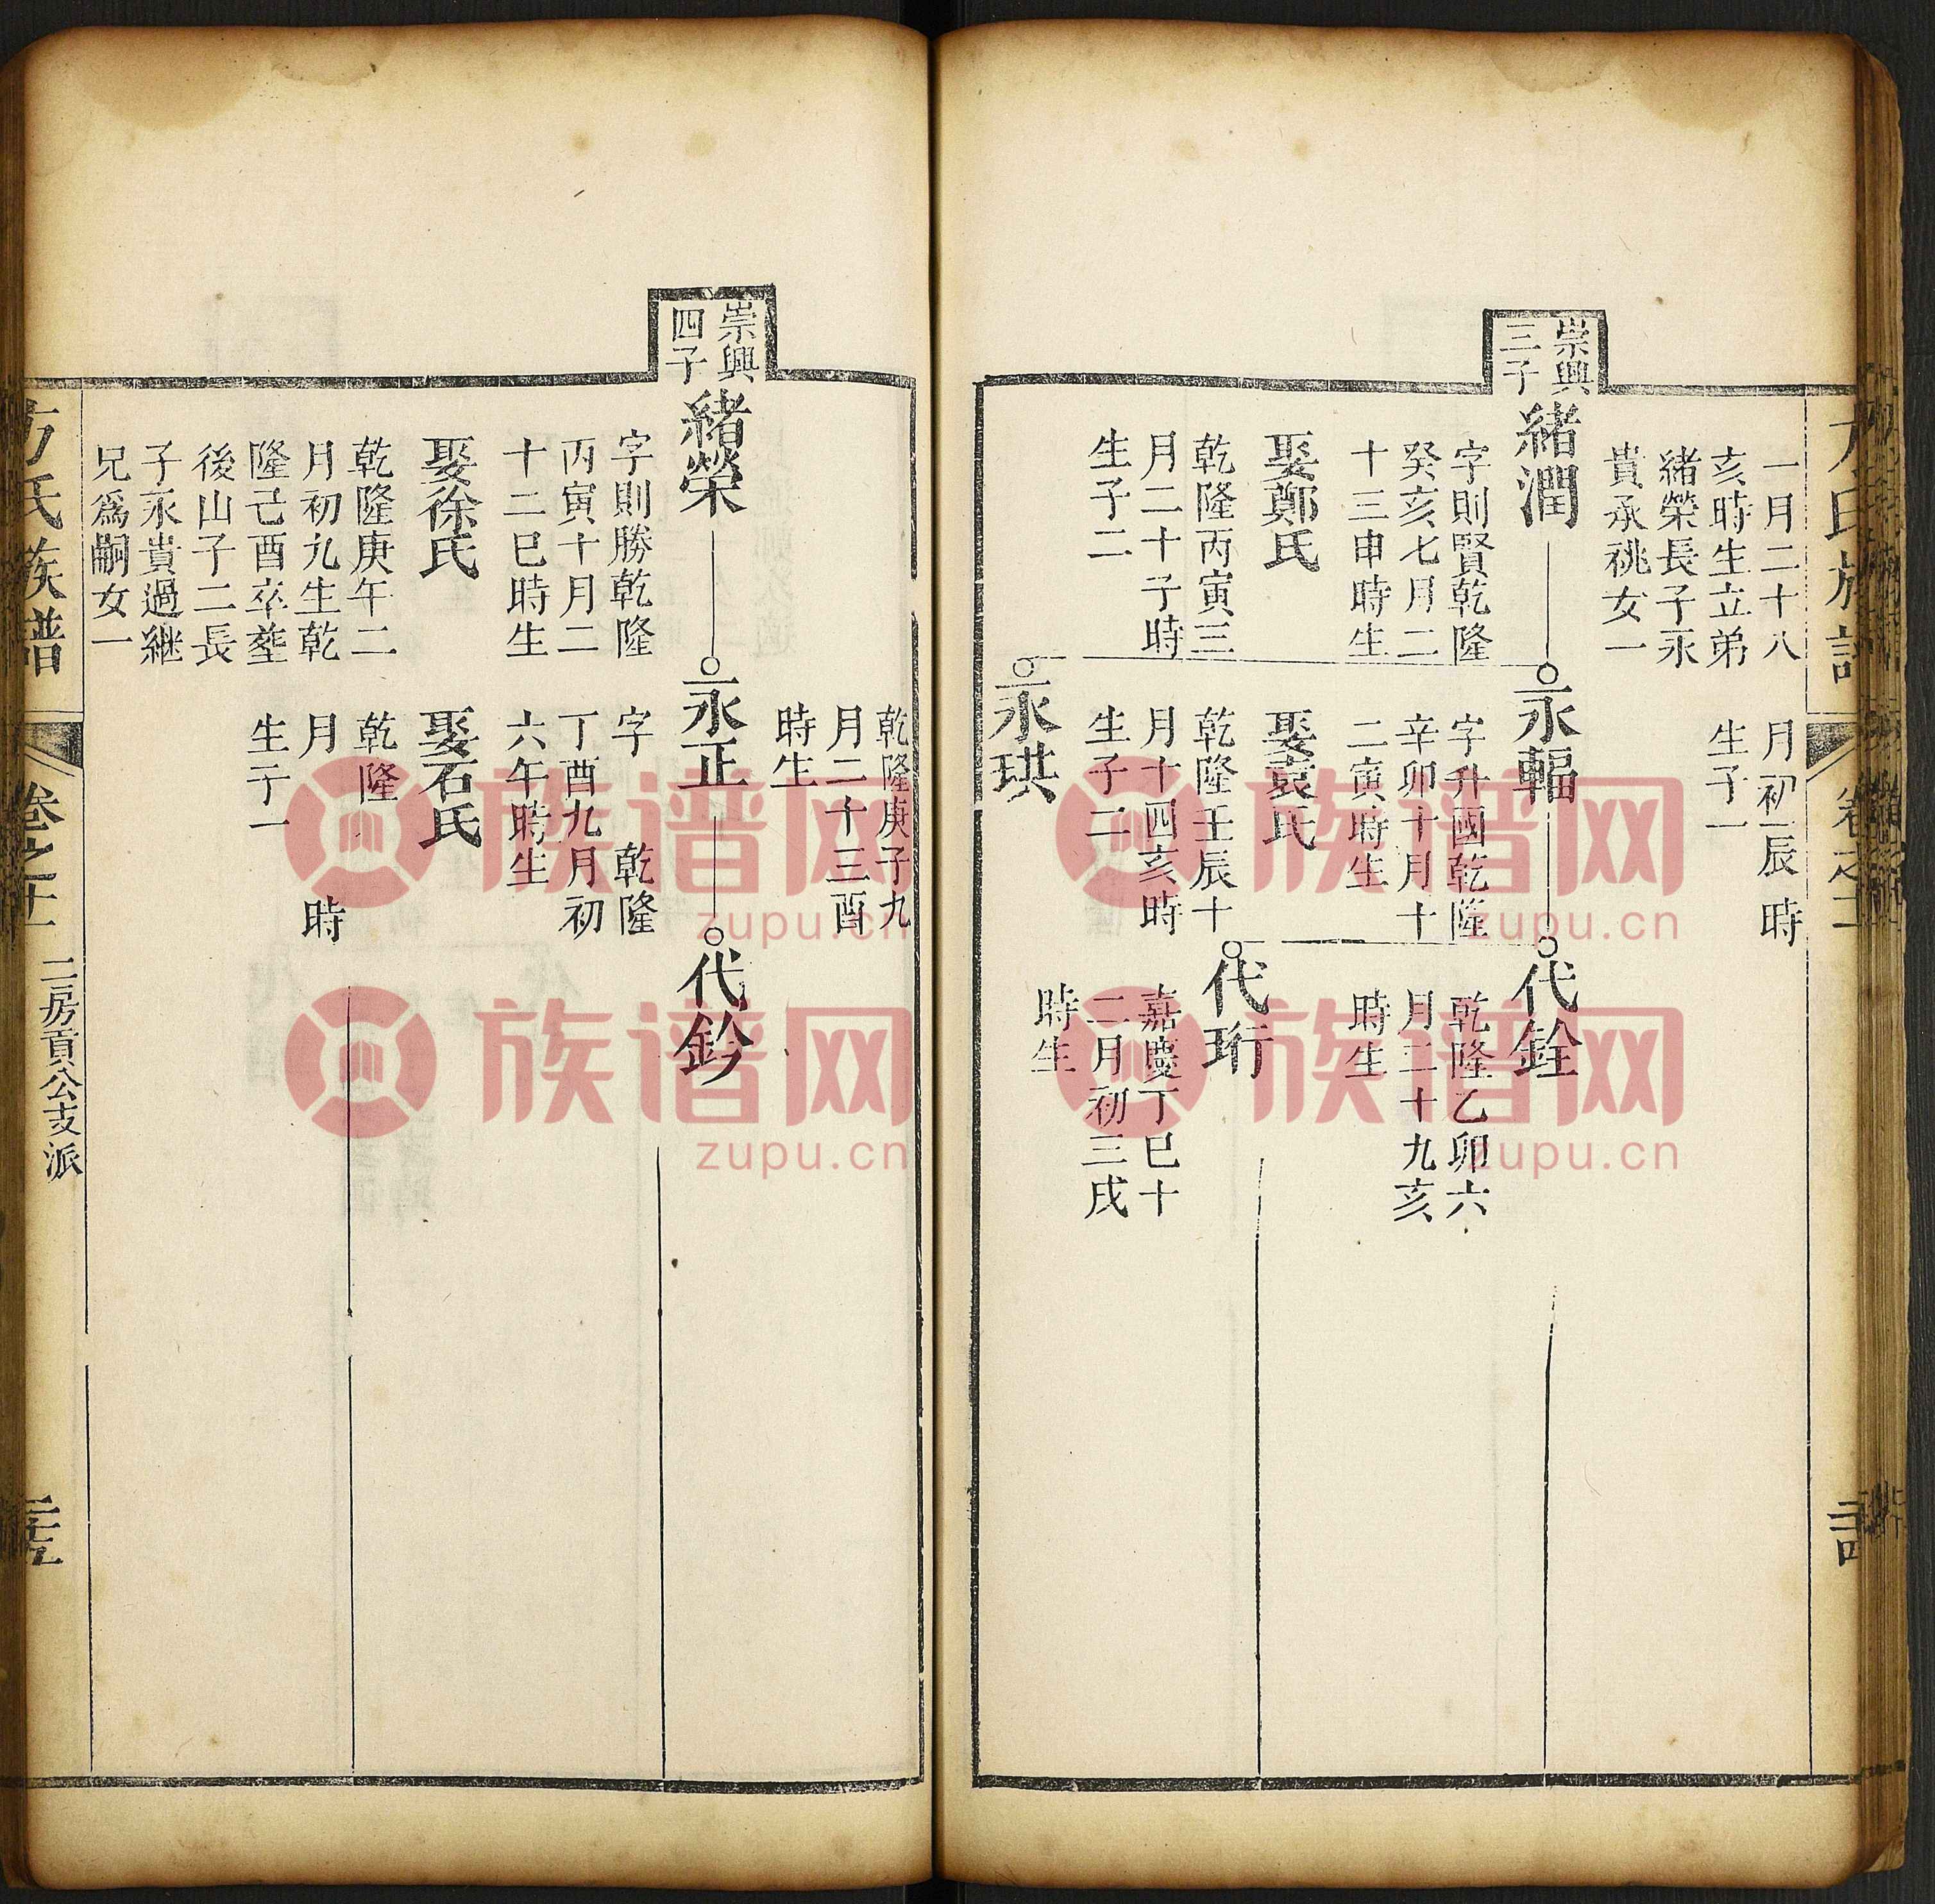 一月二十八
亥時生立弟
緒榮長子永
貴承祧女一
月初一辰時
生子一
崇興
三子
緒潤
字則賢乾隆
癸亥七月二
十三申時生
娶鄭氏
乾隆丙寅三
月二十子時
生子二
永輻
字升國乾隆
辛卯十月十
二寅時生
娶袁氏
乾隆壬辰十
月十四亥時
生子二
永珙
代銓
乾隆乙卯六
月二十九亥
時生
代珩
嘉慶丁巳十
二月初三戌
時生
乾隆庚子九
月二十三酉
時生
崇興
四子
緒榮
字則勝乾隆
丙寅十月二
十二巳時生
娶徐氏
乾隆庚午二
月初九生乾
隆己酉卒塟
後山子二長
子永貴過継
兄為嗣女一
永正
字 乾隆
丁酉九月初
六午時生
娶石氏
乾隆
月 時
生子一
代鈐
方氏族譜
卷之十一
二房貢公支派
族谱网
zupu.cn
族谱网
zupu.cn
族谱网
zupu.cn
族谱网
zupu.cn